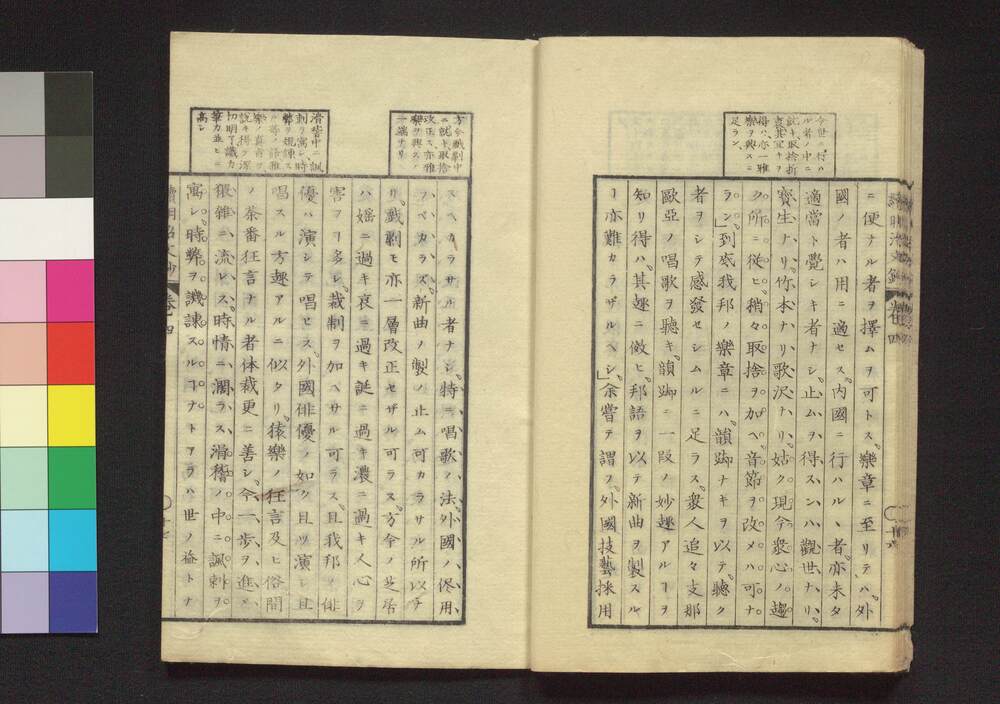 今世ニ行ハ
ルヽ者ノ中ニ
就キ取捨折
衷其宜キヲ
得ハ亦一雅
樂ヲ興スニ
足ラン
ニ便ナル者ヲ擇ムヲ可トス。樂章ニ至リテハ。外
國ノ者ハ用ニ適セス。內國ニ行ハルヽ者。亦未タ
適當ト覺シキ者ナシ。止ムヲ得スンハ觀世ナリ。
寶生ナリ。竹本ナリ。歌沢ナリ。姑ク現今衆心ノ趨
ク所ニ從ヒ。稍々取捨ヲ加ヘ。音節ヲ改メハ可ナ
ラン」到底我邦ノ樂章ニハ韻脚ナキヲ以テ。聽ク
者ヲシテ感發セシムルニ足ラス。衆人追々支那
歐亞ノ唱歌ヲ聽キ。韻脚ニ一段ノ妙趣アルヿヲ
知リ得ハ。其趣ニ傚ヒ。邦語ヲ以テ新曲ヲ製スル
ー亦難カラザルヘシ」余嘗テ謂フ。外國技藝採用
方今戲劇中
ニ就キ取捨
改正ス亦雅
樂ヲ興スノ
一端ナリ
スヘカラサル者ナシ。特ニ唱歌ノ法。外國ノ俻用
フベカラズ。新曲ノ製ノ止ム可カラサル所以ナ
リ。戲劇モ亦一層改正セザル可ラス。方今ノ芝居
ハ婬ニ過キ哀ニ過キ誕ニ過キ濃ニ過キ人心ヲ
害フヿ多シ。裁制ヲ加ヘサル可ラス。且我邦ノ俳
優ハ演シテ唱ヒス。外國俳優ノ如ク且ツ演シ且
唱スル方趣アルニ似タリ。猿樂ノ狂言及ヒ俗間
ノ茶番狂言ナル者体裁更ニ善シ。今一步ヲ進メ
猥雜ニ流レス。時情ニ濶ラス。滑稽ノ中ニ諷刺ヲ
寓シ。時弊ヲ譏諫スルヿナトアラハ世ノ益トナ
滑稽中ニ諷
刺ヲ寓シ時
弊ヲ規諫ス
樂ノ眞旨ヲ
說キ得テ深
切明了識力
筆力並ヒニ
高シ
卷十四